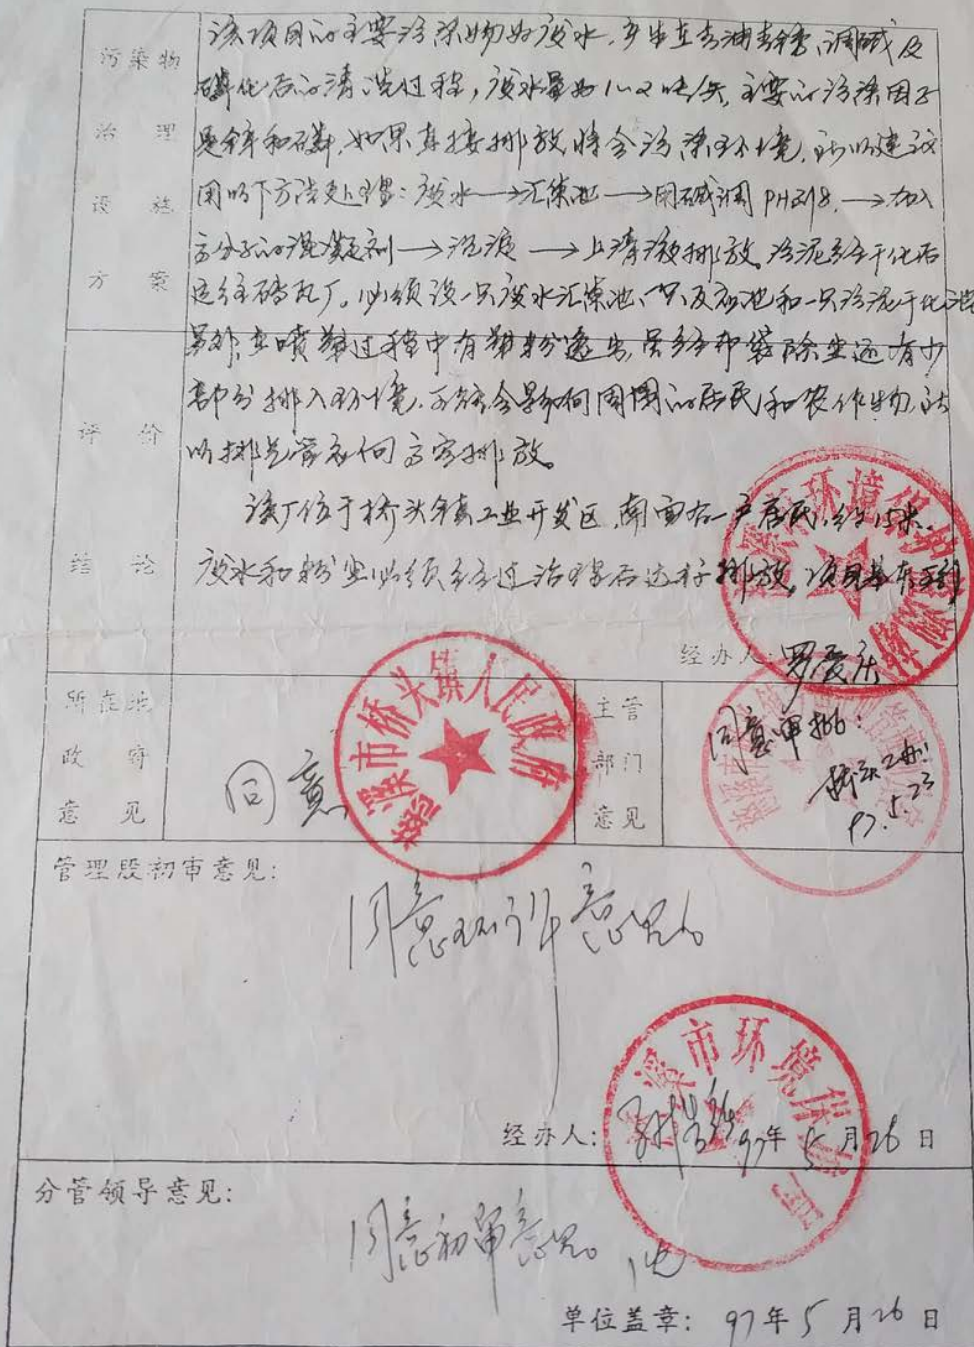 污染物治理设施方案
该项目的主要污染物为废水,产生在去油去锈、调碱及
磷化后的清洗过程,废水量为1~2吨/天,主要的污染因子
是锌和磷,如果直接排放将会污染环境,所以建议
用以下方法处理:废水→汇集池→用碱调PH到8,→加入
高分子的混凝剂→沉淀→上清液排放,污泥经干化后
送往砖瓦厂。必须设一只废水汇集池、一只反应池和一只污泥干化池
评价结论
另外,在喷塑过程中有塑粉逸出,虽经布袋除尘还有少
部分排入环境,可能会影响周围的居民和农作物,所
以排气管应向高空排放。
该厂位于桥头镇工业开发区,南面有一户居民,约15米。
废水和粉尘必须经过治理后达标排放,项目基本可行
经办人:罗
慈溪市环境保护
所在地政府意见
同意
慈溪市桥头镇人民政府
主管部门意见
同意审批:
97.5.23
管理股初审意见:
同意环评意见。
慈溪市环境保护局
经办人: 97年5月26日
分管领导意见:
同意初审意见。
单位盖章: 97年5月26日